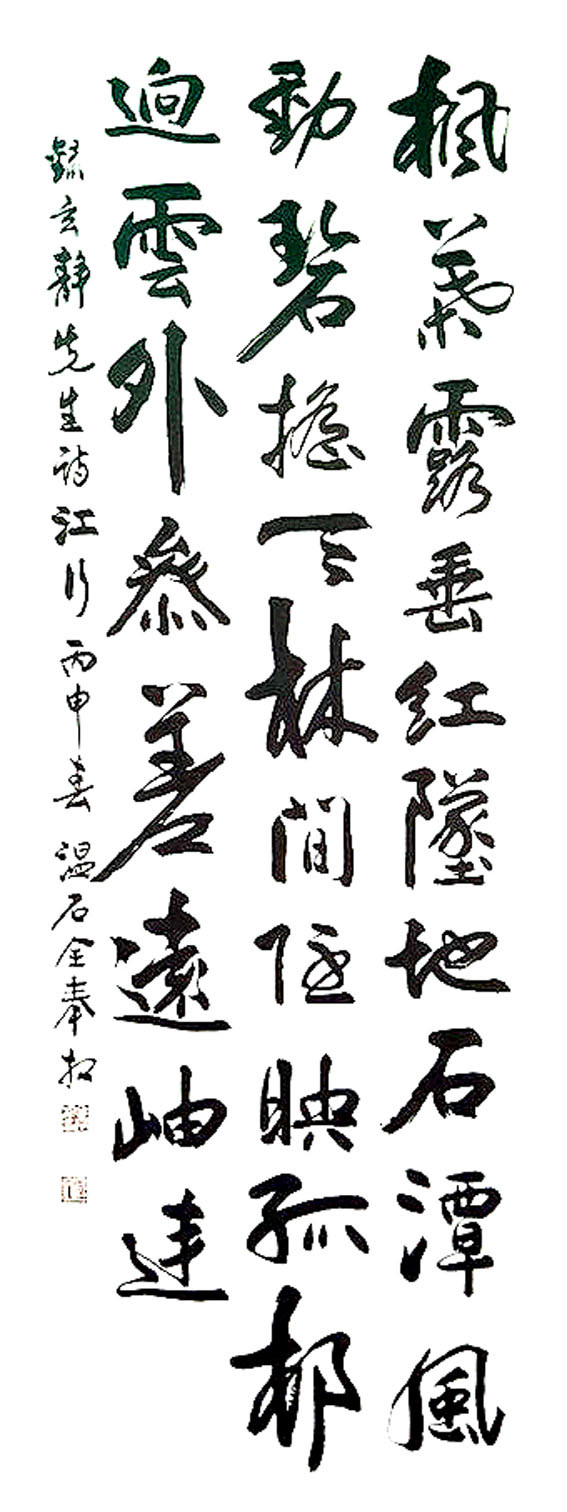 楓葉露垂紅墜地石潭風
動碧搖天林間隱映孤邨
迥雲外參差遠岫連
玄靜先生詩江行丙申春溫石全奉相